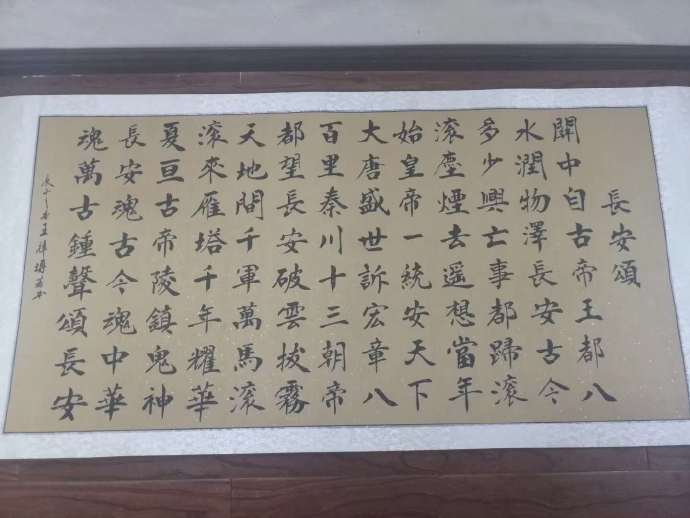 長安頌
關中自古帝王都八
水潤物澤長安古今
多少興亡事都歸滾
滾塵煙去遥想當年
始皇帝一統安天下
大唐盛世訴宏章八
百里秦川十三朝帝
都望長安破雲拔霧
天地間千軍萬馬滾
滾來雁塔千年耀華
夏亘古帝陵鎮鬼神
長安魂古今魂中華
魂萬古鍾聲頌長安